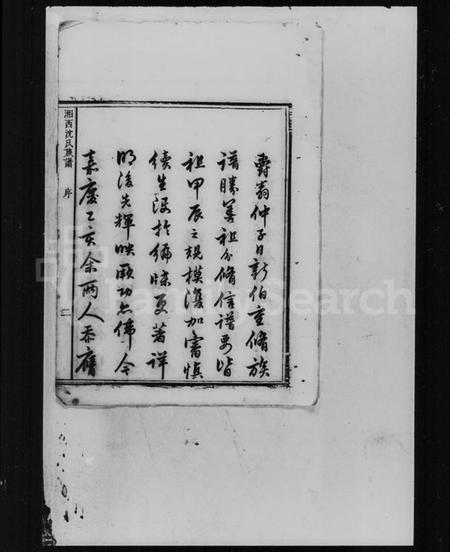 爵翁仲子日新伯重脩族
譜勝善祖分脩信譜要皆
祖甲辰之規模復加審慎
續生沒於編牒更著詳
明後先輝映厥功亦偉今
嘉慶乙亥余兩人忝膺
湘西沈氏族譜 序 二
FamilySearch